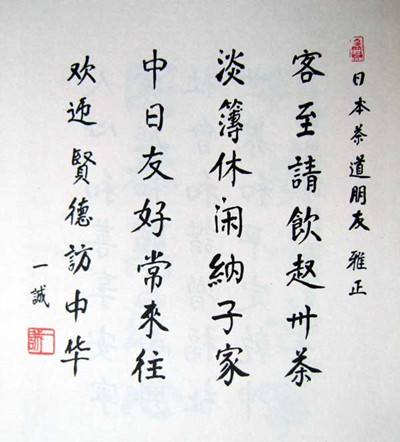 日本茶道朋友 雅正
客至請飲赵州茶
淡簿休闲納子家
中日友好常來往
欢迎賢德訪中华
一誠